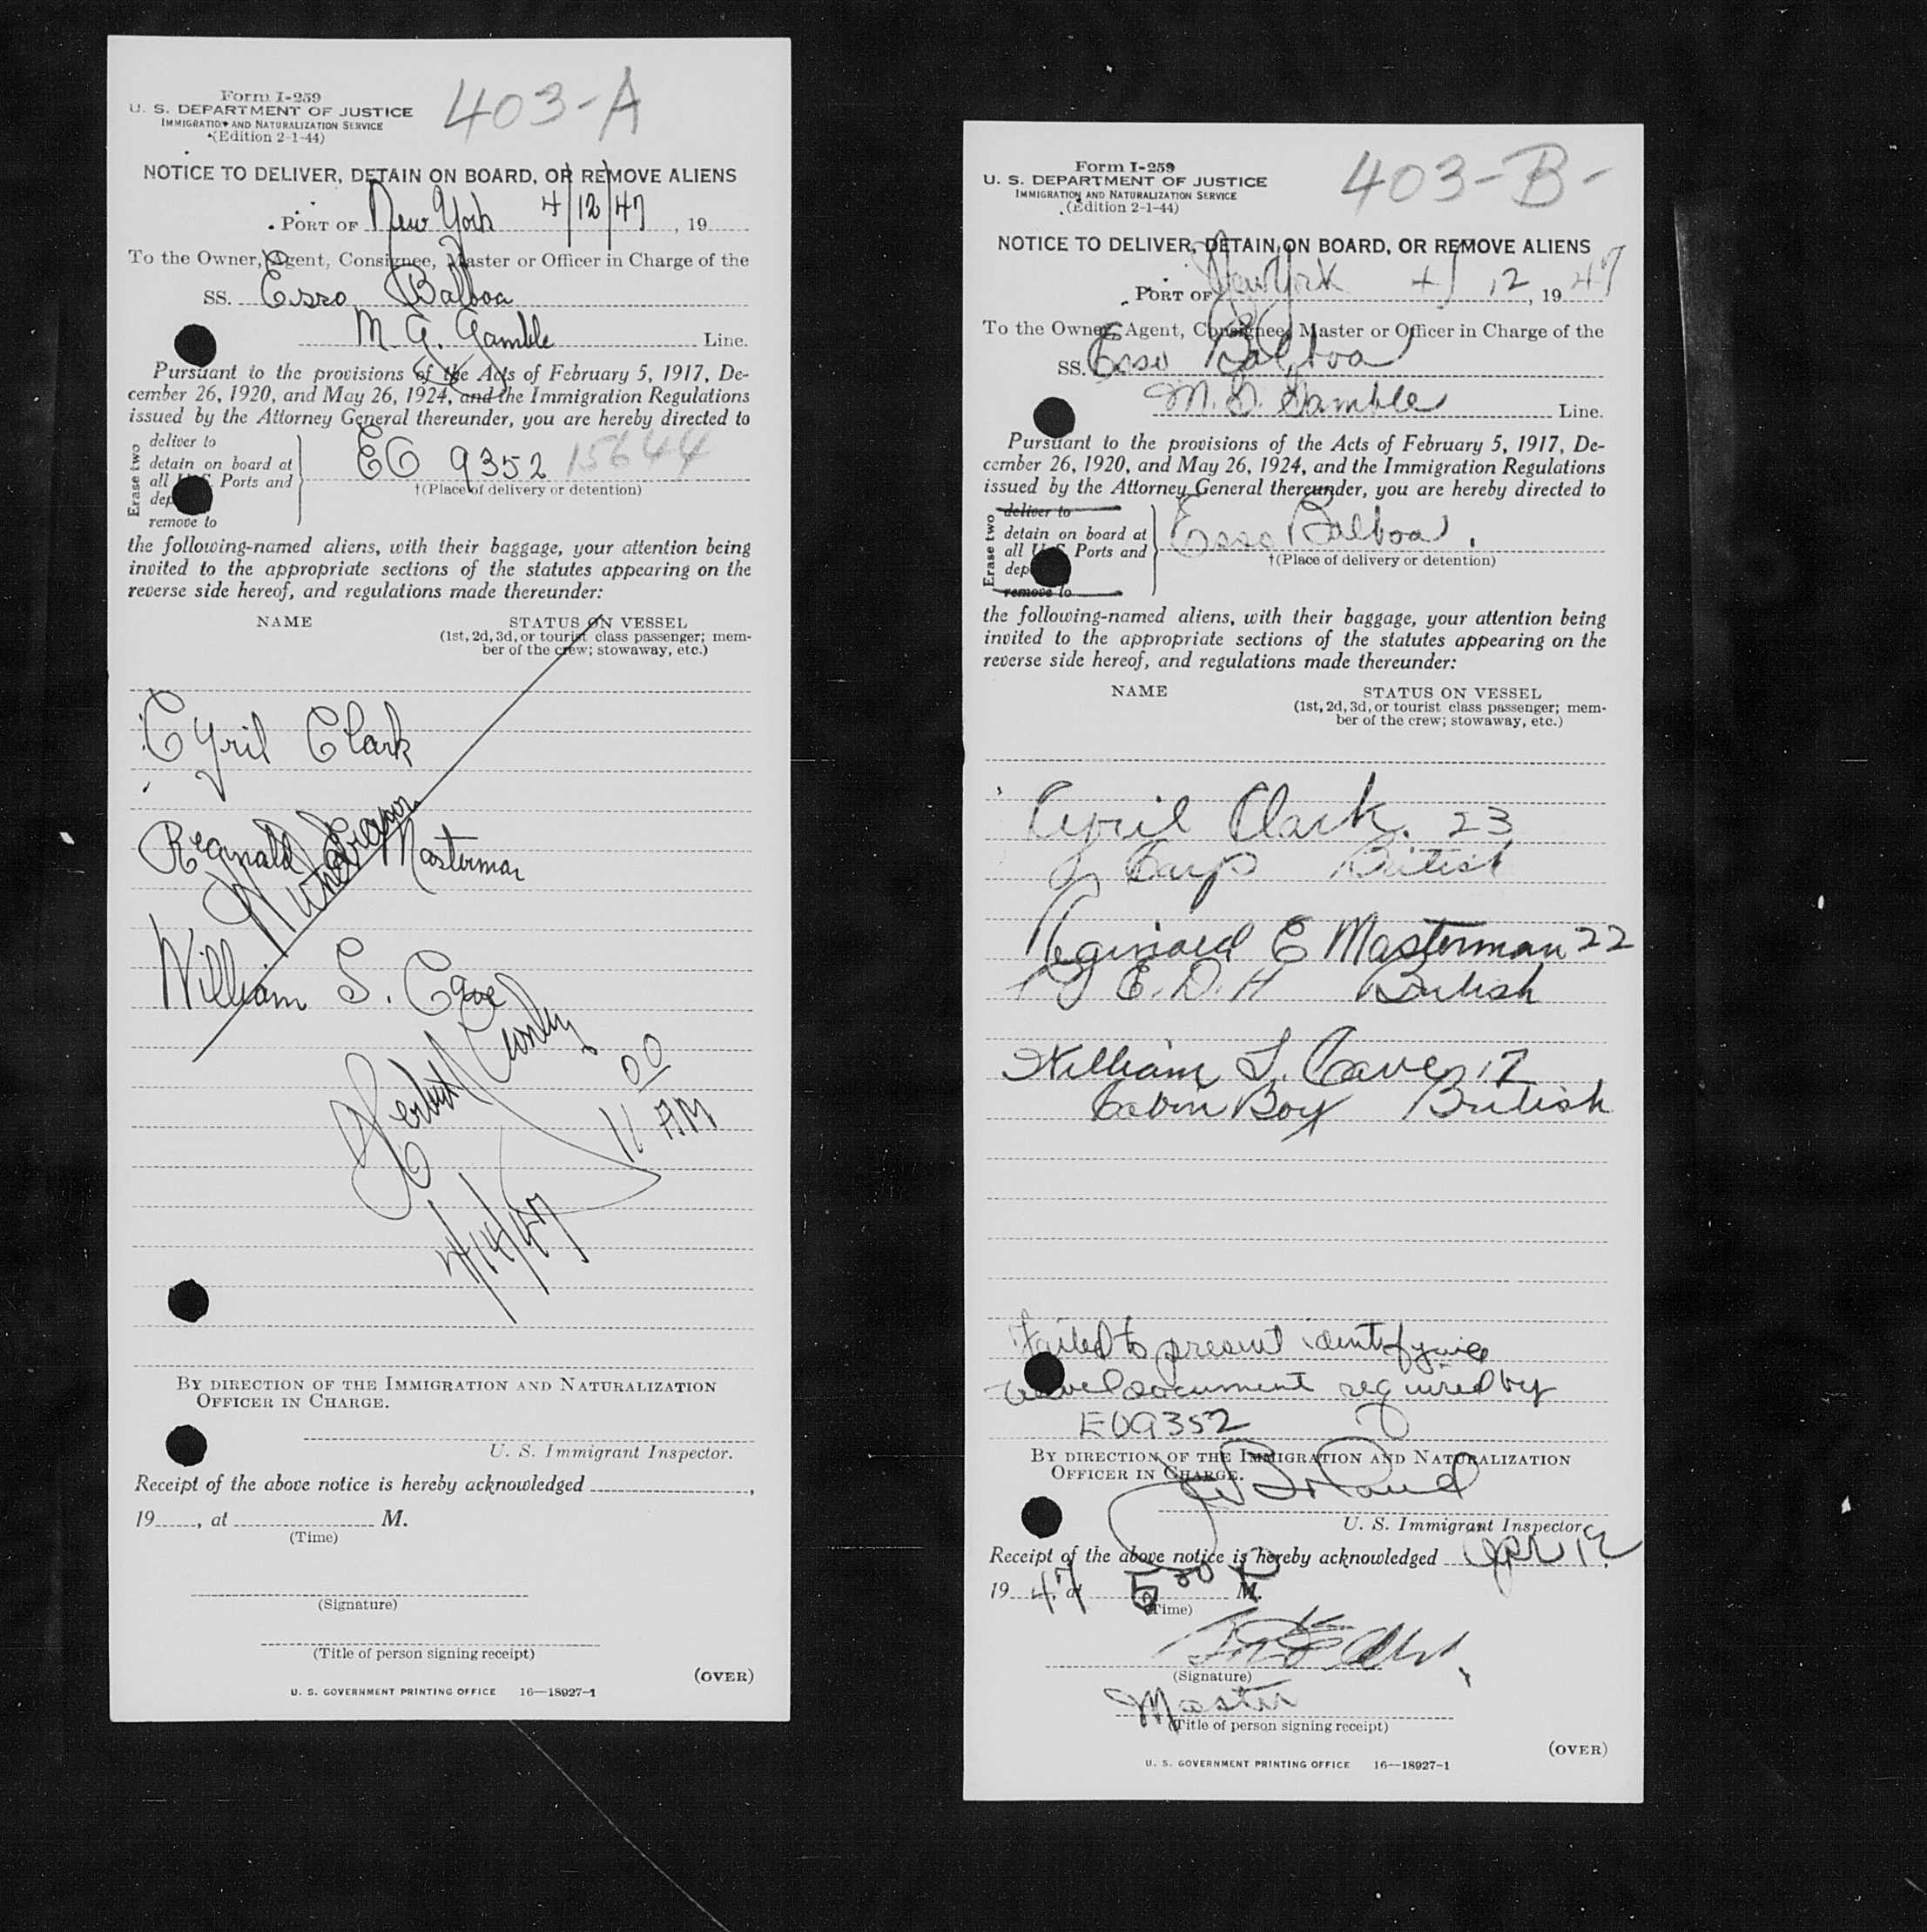 Form I-259
U. S. DEPARTMENT OF JUSTICE
IMMIGRATION AND NATURALIZATION SERVICE
(Edition 2-1-44)
403-A
NOTICE TO DELIVER, DETAIN ON BOARD, OR REMOVE ALIENS
PORT OF New York 4/12/47, 19
To the Owner, Agent, Consignee, Master or Officer in Charge of the
SS. Esso Balboa
M. G. Gamble Line.
Pursuant to the provisions of the Acts of February 5, 1917, De-
cember 26, 1920, and May 26, 1924, and the Immigration Regulations
issued by the Attorney General thereunder, you are hereby directed to
Erase two
deliver to
detain on board at
all U.S. Ports and
dep
remove to
EO 9352 15644
†(Place of delivery or detention)
the following-named aliens, with their baggage, your attention being
invited to the appropriate sections of the statutes appearing on the
reverse side hereof, and regulations made thereunder:
NAME STATUS ON VESSEL
(1st, 2d, 3d, or tourist class passenger; mem-
ber of the crew; stowaway, etc.)
Cyril Clark
Reginald Masterman
Withdrawn
William S. Cave
Herbert
11 00 AM
4/14/47
BY DIRECTION OF THE IMMIGRATION AND NATURALIZATION
OFFICER IN CHARGE.
U. S. Immigrant Inspector.
Receipt of the above notice is hereby acknowledged ,
19 , at M.
(Time)
(Signature)
(Title of person signing receipt)
(OVER)
U. S. GOVERNMENT PRINTING OFFICE 16—18927-1
Form I-259
U. S. DEPARTMENT OF JUSTICE
IMMIGRATION AND NATURALIZATION SERVICE
(Edition 2-1-44)
403-B-
NOTICE TO DELIVER, DETAIN ON BOARD, OR REMOVE ALIENS
PORT OF New York 4/12, 1947
To the Owner, Agent, Consignee, Master or Officer in Charge of the
SS. Esso Balboa
M. G. Gamble Line.
Pursuant to the provisions of the Acts of February 5, 1917, De-
cember 26, 1920, and May 26, 1924, and the Immigration Regulations
issued by the Attorney General thereunder, you are hereby directed to
Erase two
deliver to
detain on board at
all U.S. Ports and
dep
remove to
Esso Balboa.
†(Place of delivery or detention)
the following-named aliens, with their baggage, your attention being
invited to the appropriate sections of the statutes appearing on the
reverse side hereof, and regulations made thereunder:
NAME STATUS ON VESSEL
(1st, 2d, 3d, or tourist class passenger; mem-
ber of the crew; stowaway, etc.)
Cyril Clark. 23
Carp British
Reginald E Masterman 22
E.D.H British
William S. Cave 17
Cabin Boy British
Failed to present identifying
travel document required by
EO9352
BY DIRECTION OF THE IMMIGRATION AND NATURALIZATION
OFFICER IN CHARGE.
U. S. Immigrant Inspector.
Receipt of the above notice is hereby acknowledged Apr 12,
1947 at 5 00 P M.
(Time)
(Signature)
Master
(Title of person signing receipt)
(OVER)
U. S. GOVERNMENT PRINTING OFFICE 16—18927-1